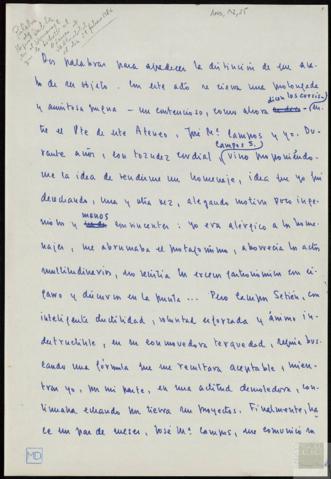 AMD, 112, 25
Palabras
Dos palabras para agradecer la distinción de que aca-
bo de ser objeto. Con este acto se cierra una prolongada
y amistosa pugna – un contencioso, como ahora dicen los cursis – en-
tre el Pte de este Ateneo, José Mª Campos y yo. Du-
rante años, con tozudez cordial, Campos S. vino proponiendo-
me la idea de rendirme un homenaje, idea que yo fui
declinando, una y otra vez, alegando motivos poco inge-
niosos y menos convincentes: yo era alérgico a los home-
najes, me abrumaba el protagonismo, aborrecía los actos
multitudinarios, no resistía los excesos gastronómicos con ci-
garro y discursos en la punta... Pero Campos Setién, con
inteligente ductilidad, voluntad esforzada y ánimo in-
destructible, en su conmovedora terquedad, seguía bus-
cando una fórmula que me resultara aceptable, mien-
tras yo, por mi parte, en una actitud demoledora, con-
tinuaba echando por tierra sus proyectos. Finalmente, ha-
ce un par de meses, José Mª Campos, me comunicó su
MD